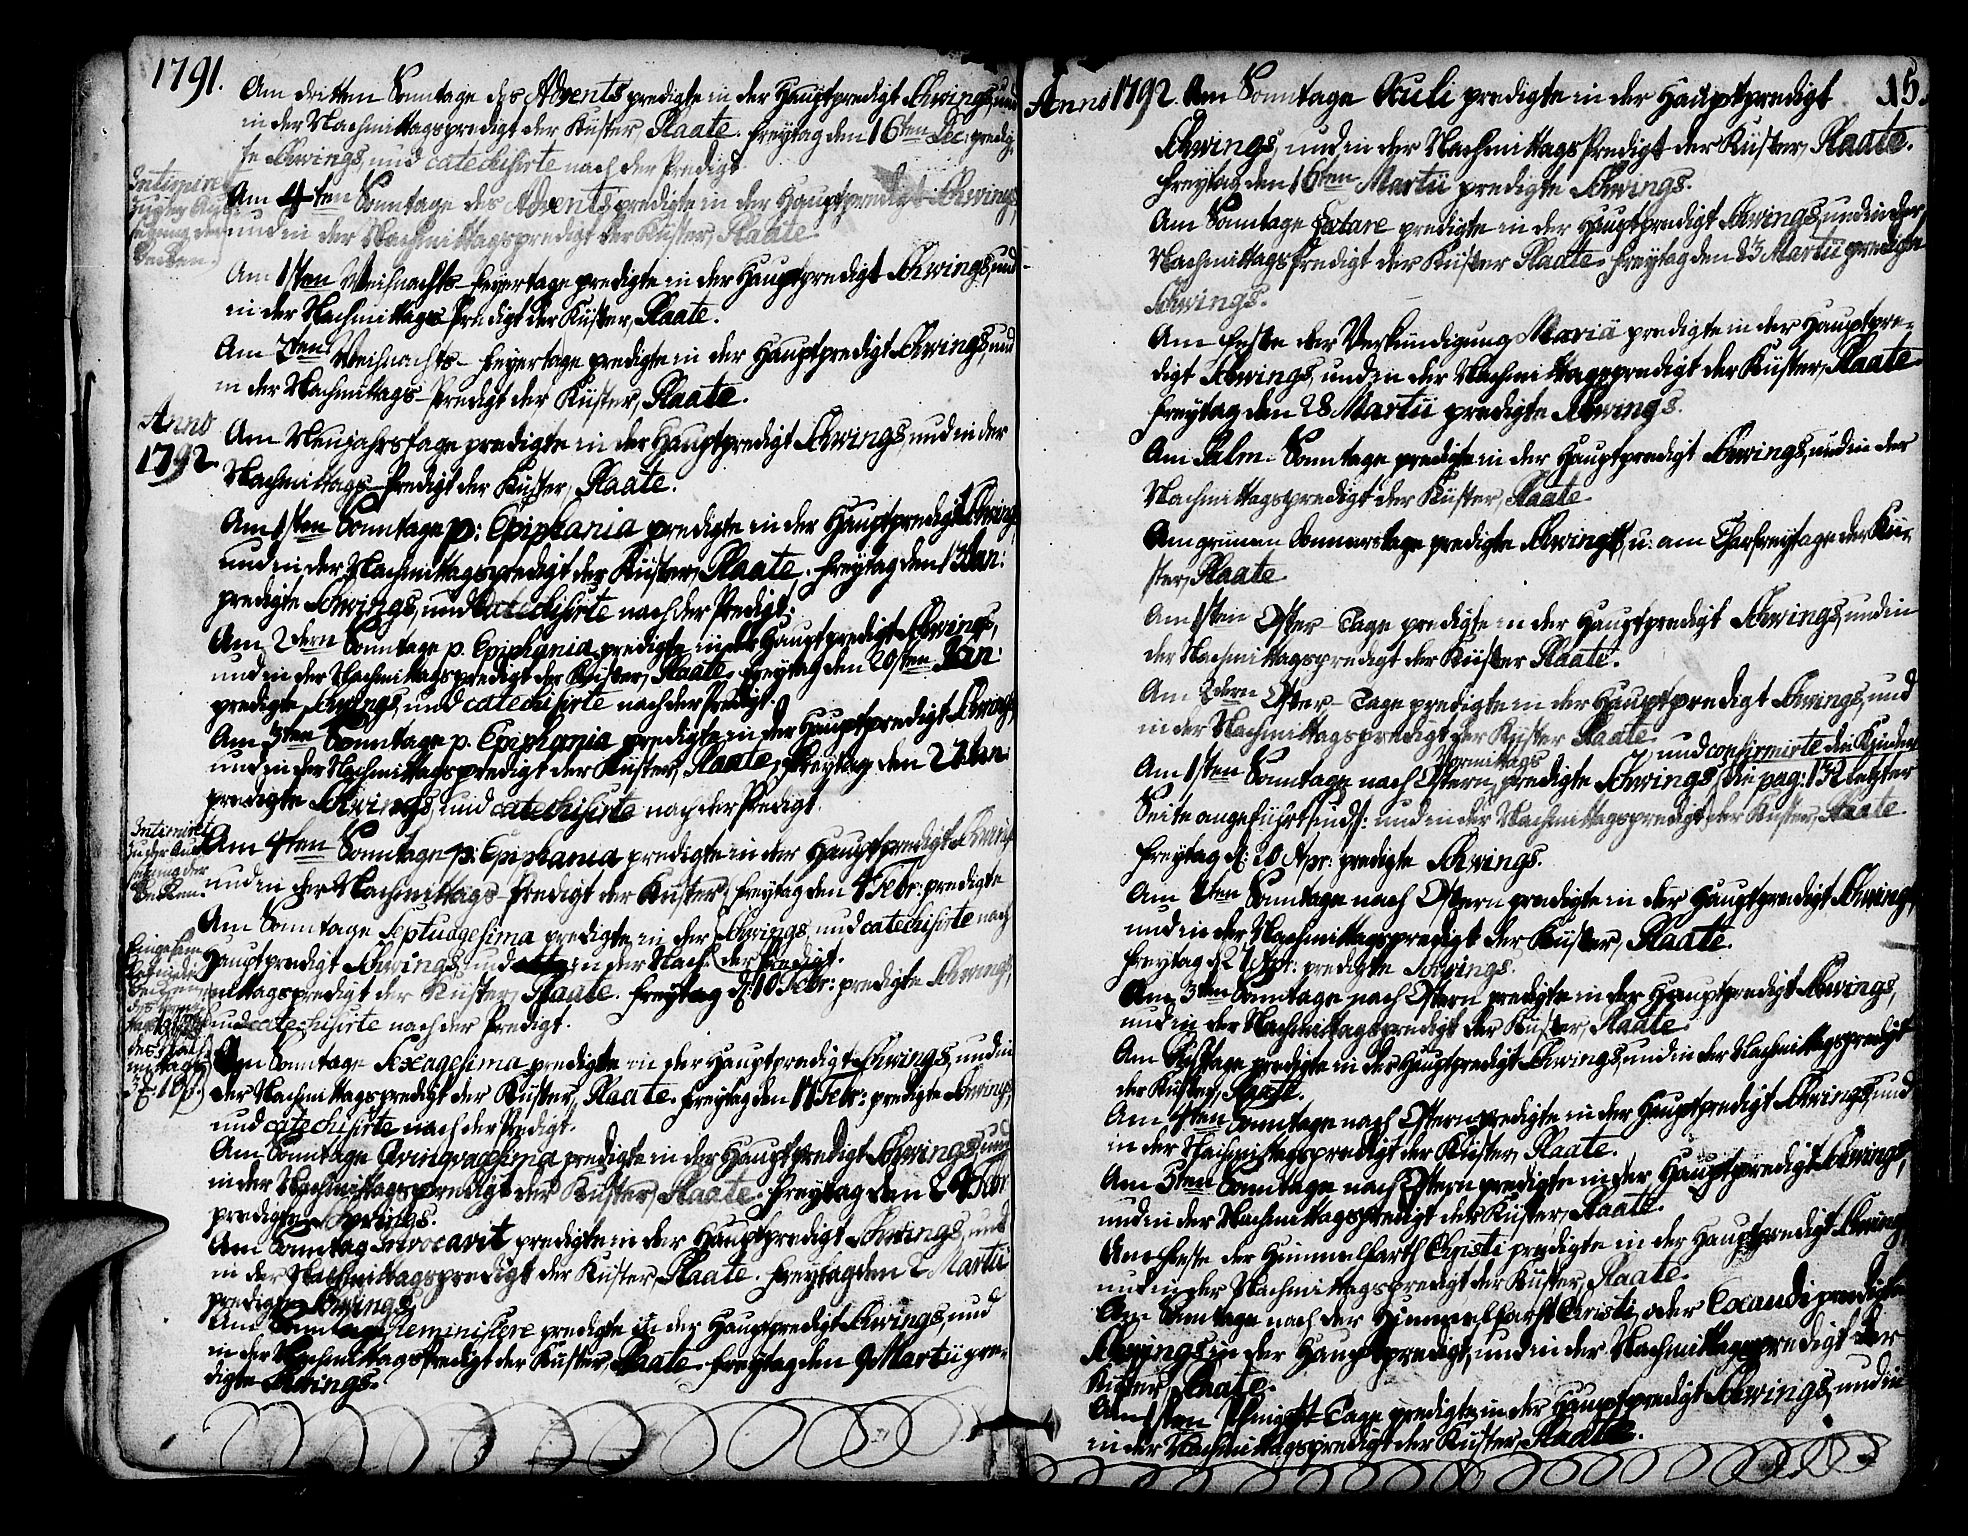 1791.
Am dritten Sonntage des Advents predigte in der Hauptpredigt Schwings, und
in der Nachmittagspredigt der Küster, Plaate. Freytag den 16ten Dec. predig-
te Schwings, und catechisirte nach der Predigt.
Intimiret
zu der Aus-
setzung der
Becken.
Am 4ten Sonntage des Advents predigte in der Hauptpredigt Schwings,
und in der Nachmittagspredigt der Küster, Plaate.
Am 1sten Weihnachts-Feyertage predigte in der Hauptpredigt Schwings, und
in der Nachmittags-Predigt der Küster, Plaate.
Am 2ten Weihnachts-Feyertage predigte in der Hauptpredigt Schwings, und
in der Nachmittags-Predigt der Küster, Plaate.
Anno
1792.
Am Neujahrstage predigte in der Hauptpredigt Schwings, und in der
Nachmittags-Predigt der Küster, Plaate.
Am 1sten Sonntage p: Epiphania predigte in der Hauptpredigt Schwings,
und in der Nachmittagspredigt der Küster, Plaate. Freytag den 13 Jan:
predigte Schwings, und catechisirte nach der Predigt.
Am 2dern Sonntage p. Epiphania predigte in der Hauptpredigt Schwings,
und in der Nachmittagspredigt der Küster, Plaate. Freytag den 20sten Jan:
predigte Schwings, und catechisirte nach der Predigt.
Am 3ten Sonntage p. Epiphania predigte in der Hauptpredigt Schwings,
und in der Nachmittagspredigt der Küster, Plaate. Freytag den 27 Jan:
predigte Schwings, und catechisirte nach der Predigt.
Intimiret
zu der Aus-
setzung der
Becken.
Am 4ten Sonntage p: Epiphania predigte in der Hauptpredigt Schwings
und in der Nachmittags-Predigt der Küster. Freytag den Febr: predigte
Schwings, und catechisirte nach
der Predigt.
Am Sonntage Septuagesima predigte in der
Hauptpredigt Schwings, und in der Nach-
mittagspredigt der Küster, Plaate. Freytag d: 10 Febr: predigte Schwings,
und catechisirte nach der Predigt.
des Nach-
mittags
Am Sonntage Sexagesima predigte in der Hauptpredigt Schwings, und in
der Nachmittagspredigt der Küster, Plaate. Freytag den 17 Febr: predigte Schwings,
und catechisirte nach der Predigt.
Am Sonntage Qvinqvagesima predigte in der Hauptpredigt Schwings, und
in der Nachmittagspredigt der Küster, Plaate. Freytag den 24 Febr:
predigte Schwings.
Am Sonntag Invocavit predigte in der Hauptpredigt Schwings, und
in der Nachmittagspredigt der Küster, Plaate. Freytag den 2 Martii
predigte Schwings.
Am Sonntage Reminiscere predigte in der Hauptpredigt Schwings, und
in der Nachmittagspredigt der Küster, Plaate. Freytag den 9 Martii pre-
digte Schwings.
15.
Anno 1792. Am Sonntage Oculi predigte in der Hauptpredigt
Schwings, und in der Nachmittags Predigt der Küster, Plaate.
Freytag den 16ten Martii predigte Schwings.
Am Sonntage Lætare predigte in der Hauptpredigt Schwings, und in der
Nachmittags Predigt der Küster Plaate. Freytag den 23 Martii predigte
Schwings.
Am Feste der Verkündigung Mariä predigte in der Hauptpre-
digt Schwings, und in der Nachmittagspredigt der Küster, Plaate.
Freytag den 28 Martii predigte Schwings.
Am Palm-Sonntage predigte in der Hauptpredigt Schwings, und in der
Nachmittagspredigt der Küster, Plaate.
Am grünen Donnerstage predigte Schwings, u. am Charfreytage der Kü-
ster, Plaate.
Am 1sten Oster-Tage predigte in der Hauptpredigt Schwings, und in
der Nachmittagspredigt der Küster Plaate.
Am 2dern Oster-Tage predigte in der Hauptpredigt Schwings, und
in der Nachmittagspredigt der Küster Plaate.
Vormittags und confirmirte die Kinder
Am 1sten Sonntage nach Ostern, predigte Schwings, die pag: 132 letzter
Seite angeführt sind: und in der Nachmittagspredigt der Küster, Plaate.
Freytag d: 20 Apr: predigte Schwings.
Am 2ten Sonntage nach Ostern predigte in der Hauptpredigt Schwings,
und in der Nachmittagspredigt der Küster, Plaate.
Freytag d 27 Apr: predigte Schwings.
Am 3ten Sonntage nach Ostern predigte in der Hauptpredigt Schwings,
und in der Nachmittagspredigt der Küster, Plaate.
Am Bußtage predigte in der Hauptpredigt Schwings, und in der Nachmittagspredigt
der Küster, Plaate.
Am 4ten Sonntage nach Ostern predigte in der Hauptpredigt Schwings, und
in der Nachmittagspredigt der Küster, Plaate.
Am 5ten Sonntage nach Ostern predigte in der Hauptpredigt Schwings,
und in der Nachmittagspredigt der Küster, Plaate.
Am Feste der Himmelfarth Christi predigte in der Hauptpredigt Schwings,
und in der Nachmittagspredigt der Küster, Plaate.
Am Sonntage nach der Himmelfarth Christi, oder Exaudi predigte
Schwings in der Hauptpredigt, und in der Nachmittagspredigt der
Küster, Plaate.
Am 1sten Pfingst-Tage predigte in der Hauptpredigt Schwings, und in
in der Nachmittagspredigt der Küster, Plaate.